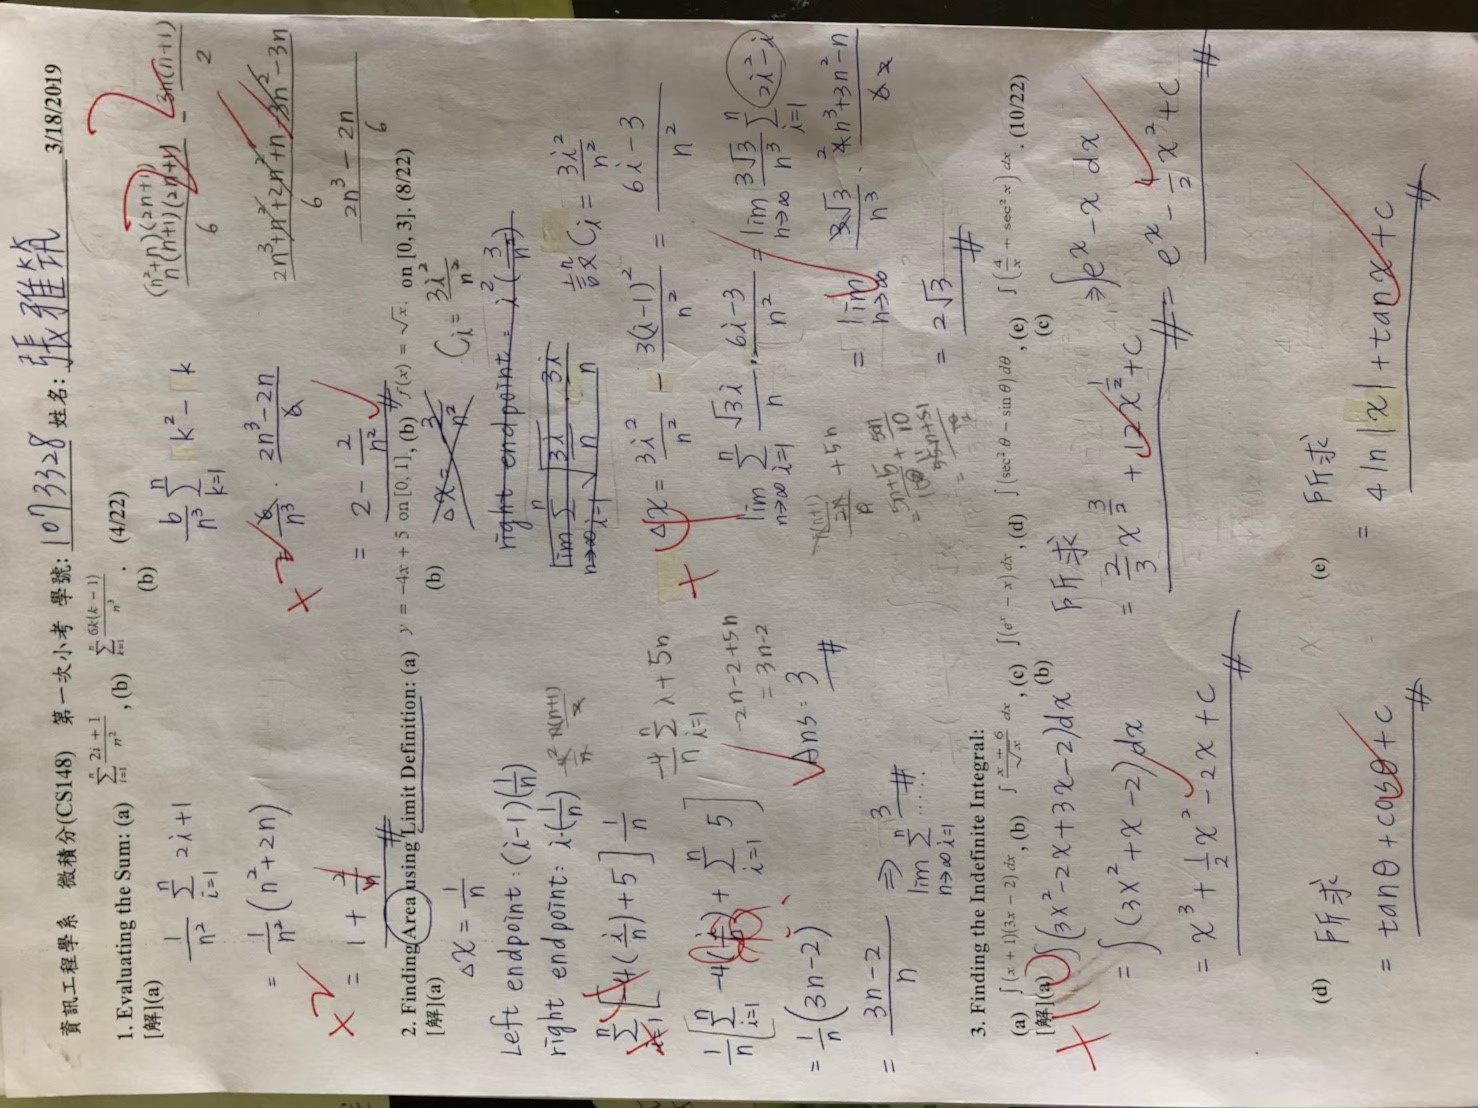 資訊工程學系 微積分(CS148) 第一次小考 學號: 1073328 姓名: 張雅筑 3/18/2019
1. Evaluating the Sum: (a) \sum_{i=1}^{n} \frac{2i+1}{n^2}, (b) \sum_{k=1}^{n} \frac{6k(k-1)}{n^3}. (4/22)
[解](a)
1/n² \sum_{i=1}^{n} 2i+1
= 1/n² (n²+2n)
+2
= 1 + 2/n #
(b)
6/n³ \sum_{k=1}^{n} k² - k
+2
= 6/n³ · (2n³-2n)/6
= 2 - 2/n² #
(n²+n)(2n+1)
n(n+1)(2n+1)/6 - 3n(n+1)/2
(2n³+n²+2n²+n-3n²-3n)/6
(2n³-2n)/6
2. Finding Area using Limit Definition: (a) y = −4x + 5 on [0, 1], (b) f(x) = √x. on [0, 3]. (8/22)
[解](a)
△x = 1/n
Left endpoint: (i-1)(1/n)
right endpoint: i·(1/n)
\sum_{i=1}^{n} [-4(i/n)+5] 1/n
1/n [\sum_{i=1}^{n} -4(i/n) + \sum_{i=1}^{n} 5]
= 1/n (3n-2)
= (3n-2)/n ⇒ 3 #
lim_{n→∞} \sum_{i=1}^{n} ......
-4/n \sum_{i=1}^{n} i + 5n
-2n-2+5n
= 3n-2
Ans: 3 #
(b)
△x = 3/n²
Ci = 3i²/n²
right endpoint = i²(3/n²)
lim_{n→∞} \sum_{i=1}^{n} √(3i/n) · 3i/n
設 Ci = 3i²/n²
+4
△x = 3i²/n² - 3(i-1)²/n² = (6i-3)/n²
lim_{n→∞} \sum_{i=1}^{n} √3i/n · (6i-3)/n² = lim_{n→∞} 3√3/n³ \sum_{i=1}^{n} 2i²-i
= lim_{n→∞} 3√3/n³ · (4n³+3n²-n)/6
= 2√3 #
3. Finding the Indefinite Integral:
(a) ∫(x + 1)(3x − 2) dx, (b) ∫ \frac{x + 6}{√x} dx, (c) ∫(e^x − x) dx, (d) ∫(sec² θ − sin θ) dθ, (e) ∫(\frac{4}{x} + sec² x) dx. (10/22)
[解](a)
+10
∫(3x²-2x+3x-2)dx
= ∫(3x²+x-2)dx
= x³ + 1/2 x² - 2x + c #
(b)
所求
= 2/3 x^{3/2} + 12x^{1/2} + c #
(c)
⇒ ∫e^x - x dx
= e^x - 1/2 x² + c #
(d)
所求
= tanθ + cosθ + c #
(e)
所求
= 4 ln |x| + tanx + c #